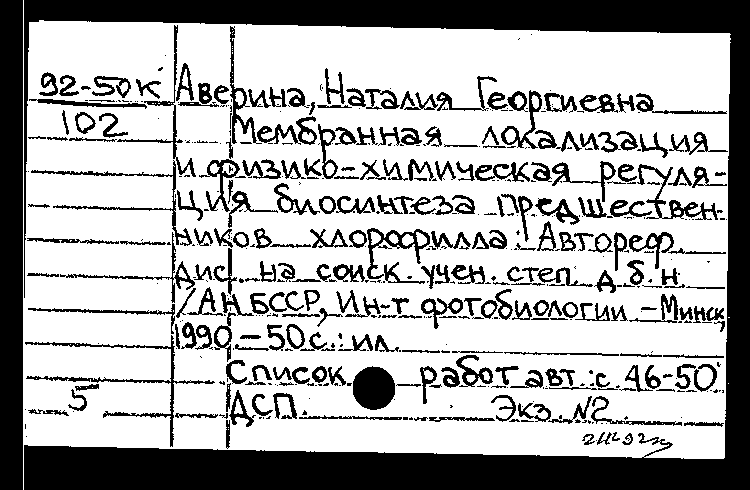 92-50К Аверина, Наталия Георгиевна
102 Мембранная локализация
и физико-химическая регуля-
ция биосинтеза предшествен-
ников хлорофилла: Автореф.
дис. на соиск. учен. степ. д. б. н.
/АН БССР, Ин-т фотобиологии - Минск,
1990.-50с.: ил.
Список работ авт.: с. 46-50.
5 ДСП. Экз. N2.